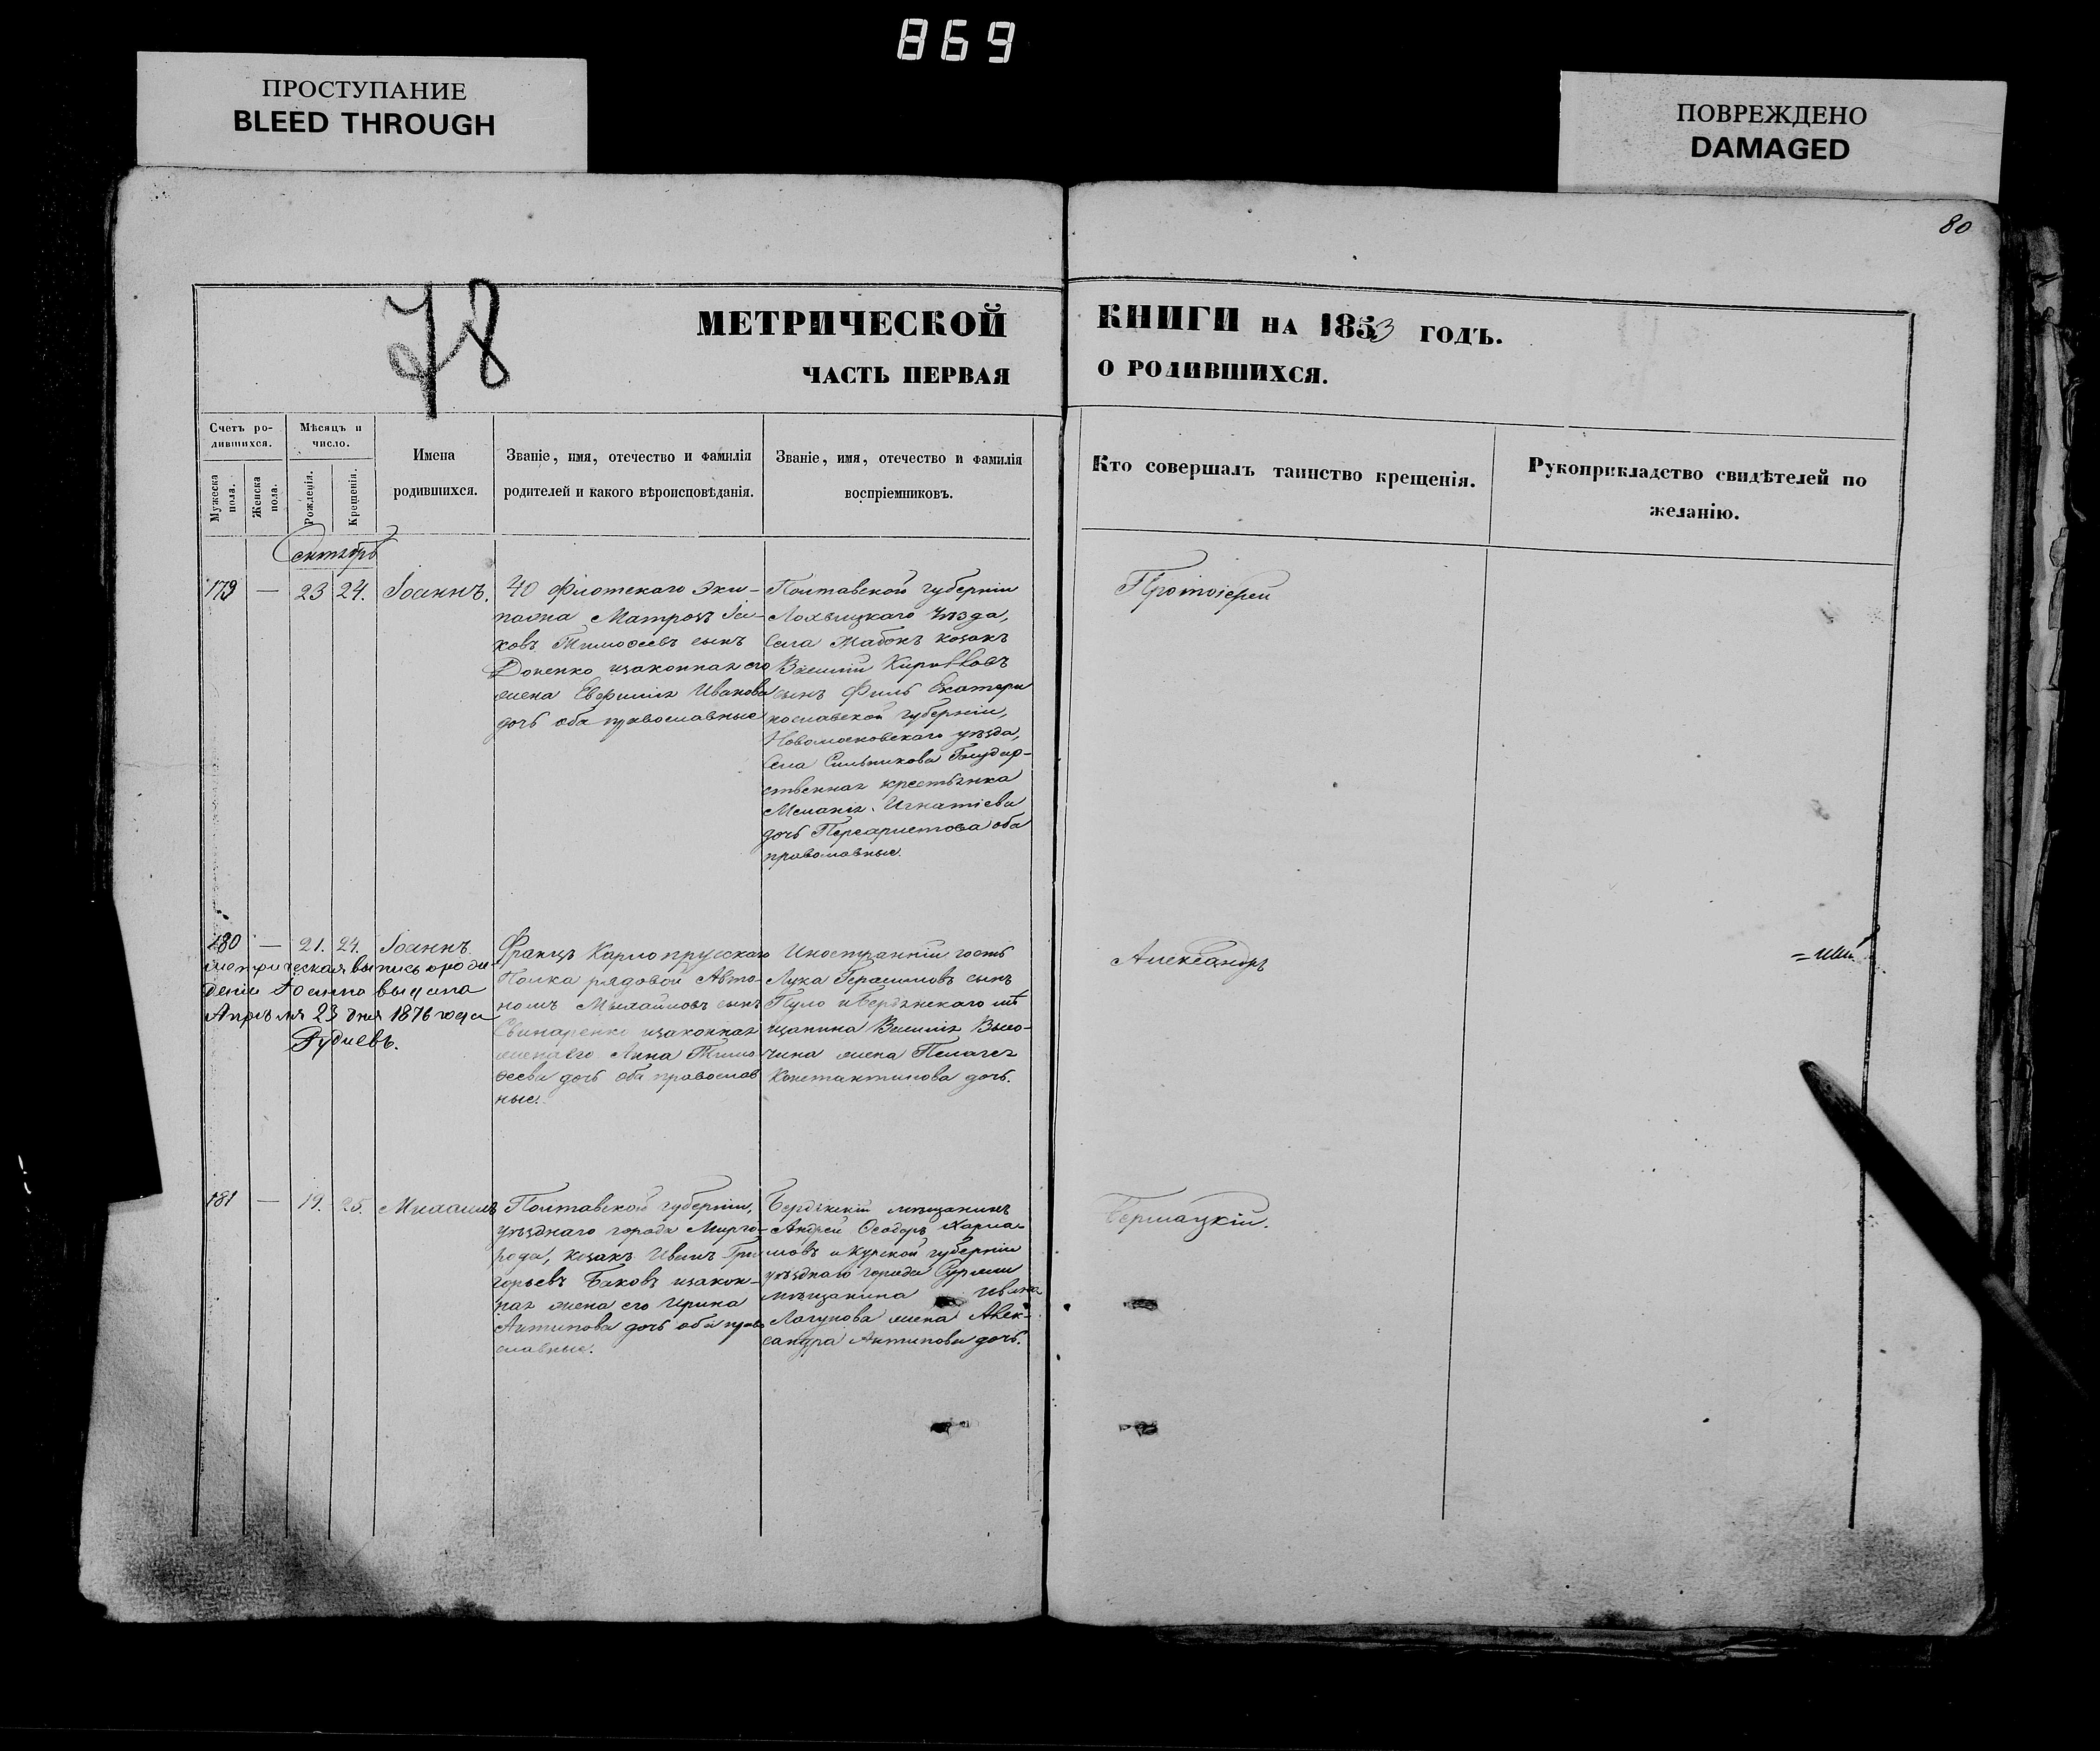 869
ПРОСТУПАНИЕ
BLEED THROUGH
ПОВРЕЖДЕНО
DAMAGED
80
78
МЕТРИЧЕСКОЙ
ЧАСТЬ ПЕРВАЯ
КНИГИ НА 1853 ГОДЪ.
О РОДИВШИХСЯ.
Счетъ ро-
дившихся.
Мѣсяцъ и
число.
Мужеска
пола.
Женска
пола.
Рожденія.
Крещенія.
Имена
родившихся.
Званіе, имя, отечество и фамилія
родителей и какого вѣроисповѣданія.
Званіе, имя, отечество и фамилія
воспріемниковъ.
Кто совершалъ таинство крещенія.
Рукоприкладство свидѣтелей по
желанію.
Сентябрь
179 — 23 24. Іоаннъ.
40 Флотскаго Эки-
пажа Матрозъ Іа-
ковъ Тимоѳеевъ сынъ
Доненко изаконная его
жена Евфимія Иванова
дочь оба православные
Полтавской губерніи
Лохвицкаго уѣзда,
Села козакъ
Василій
сынъ Екатери
нославской губерніи,
Новомосковскаго уѣзда,
Села Государ-
ственная крестьянка
Меланія Игнатіева
дочь оба
православные.
Протоіерей
180 — 21. 24. Іоаннъ
метрическая выпись о рож
деніи Іоанна выдана
Апрѣля 23 дня 1876 года
Францъ Карло прусскаго
Полка рядовой Авто-
номъ Михайловъ сынъ
Свинаренко изаконная
жена его Анна Тимо
ѳеева дочь оба православ
ные.
Иностранній гость
Лука Герасимовъ сынъ
Пуло и Бердянскаго мѣ
щанина Василія Высо-
чина жена Пелагея
Константинова дочь.
Александръ
181 — 19. 25. Михаилъ
Полтавской губерніи,
уѣзднаго города Мирго-
рода, козакъ Иванъ Гри
горьевъ Баковъ изакон-
ная жена его Ирина
Антипова дочь оба право
славные.
Бердянскій мѣщанинъ
Андрей Ѳеодоръ
и Курской губерніи
уѣзднаго города
мѣщанина Ивана
Лагунова жена Алек-
сандра Антипова дочь.